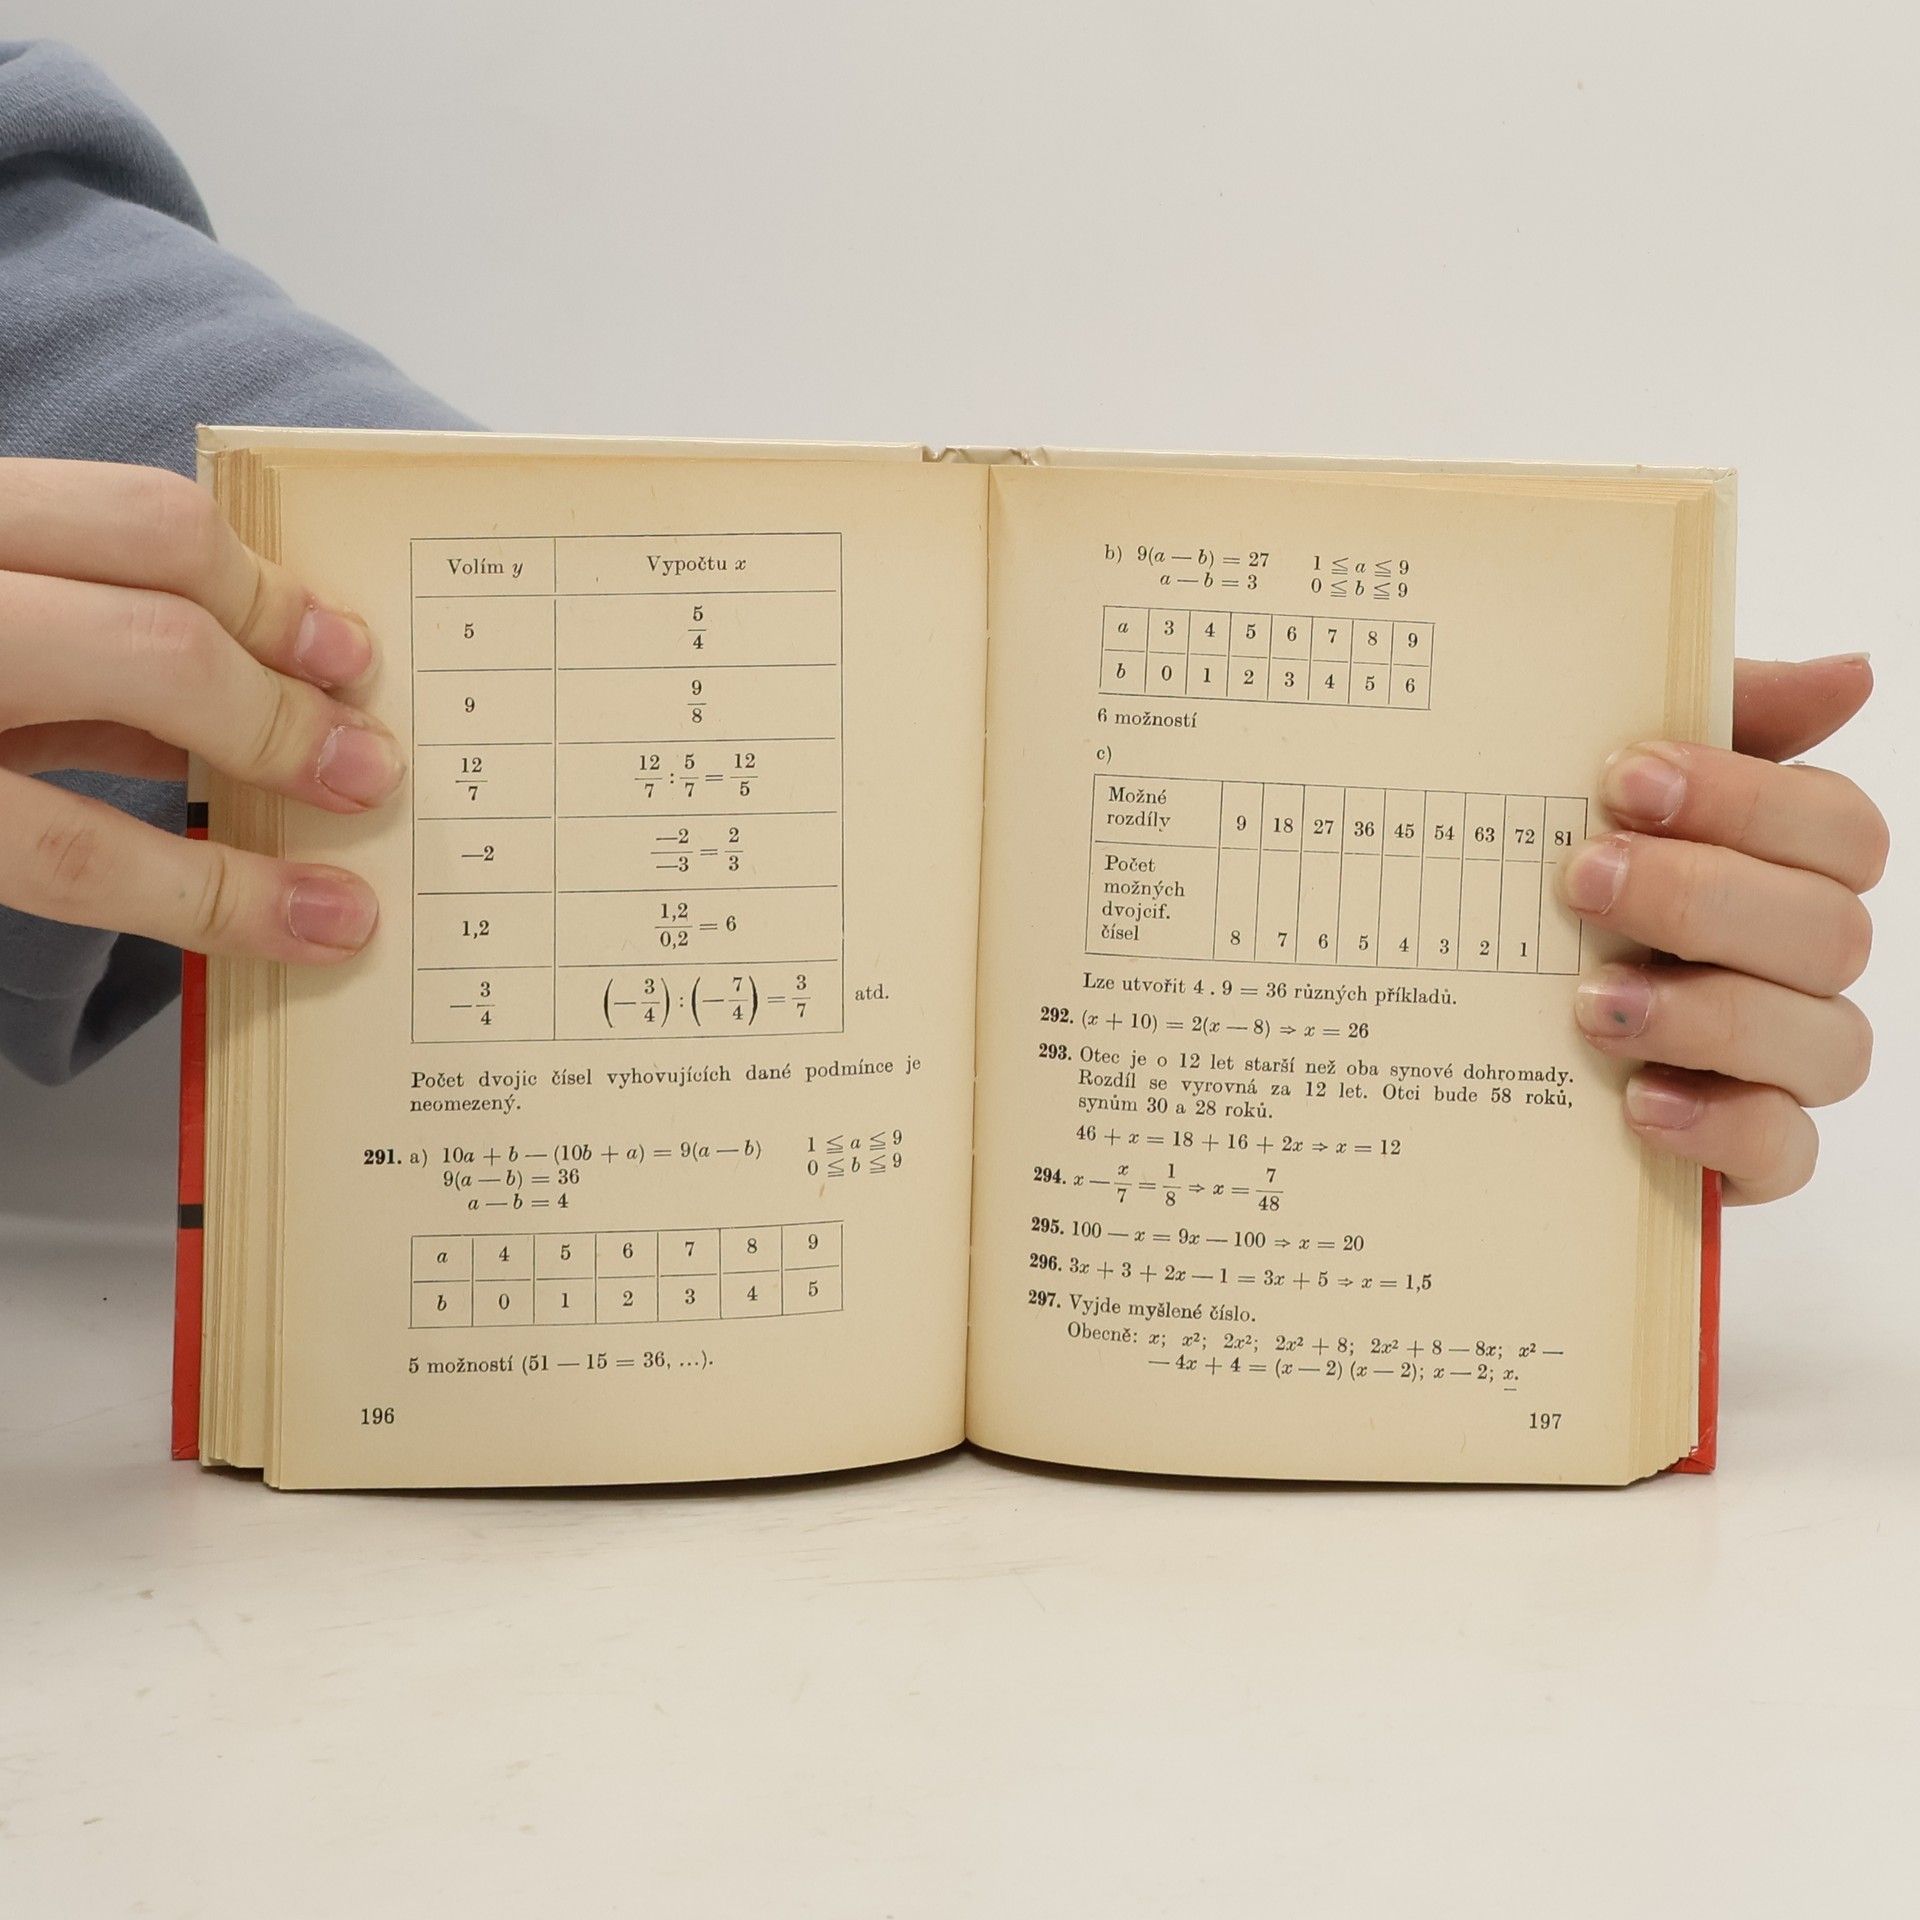 Volím y Vypočtu x
5 5/4
9 9/8
12/7 12/7 : 5/7 = 12/5
—2 —2/—3 = 2/3
1,2 1,2/0,2 = 6
—3/4 (—3/4) : (—7/4) = 3/7 atd.
Počet dvojic čísel vyhovujících dané podmínce je
neomezený.
291. a) 10a + b — (10b + a) = 9(a — b) 1 ≦ a ≦ 9
9(a — b) = 36 0 ≦ b ≦ 9
a — b = 4
a 4 5 6 7 8 9
b 0 1 2 3 4 5
5 možností (51 — 15 = 36, ...).
196
b) 9(a — b) = 27 1 ≦ a ≦ 9
a — b = 3 0 ≦ b ≦ 9
a 3 4 5 6 7 8 9
b 0 1 2 3 4 5 6
6 možností
c)
Možné
rozdíly 9 18 27 36 45 54 63 72 81
Počet
možných
dvojcif.
čísel 8 7 6 5 4 3 2 1
Lze utvořit 4 . 9 = 36 různých příkladů.
292. (x + 10) = 2(x — 8) ⇒ x = 26
293. Otec je o 12 let starší než oba synové dohromady.
Rozdíl se vyrovná za 12 let. Otci bude 58 roků,
synům 30 a 28 roků.
46 + x = 18 + 16 + 2x ⇒ x = 12
294. x — x/7 = 1/8 ⇒ x = 7/48
295. 100 — x = 9x — 100 ⇒ x = 20
296. 3x + 3 + 2x — 1 = 3x + 5 ⇒ x = 1,5
297. Vyjde myšlené číslo.
Obecně: x; x²; 2x²; 2x² + 8; 2x² + 8 — 8x; x² —
— 4x + 4 = (x — 2) (x — 2); x — 2; x.
197